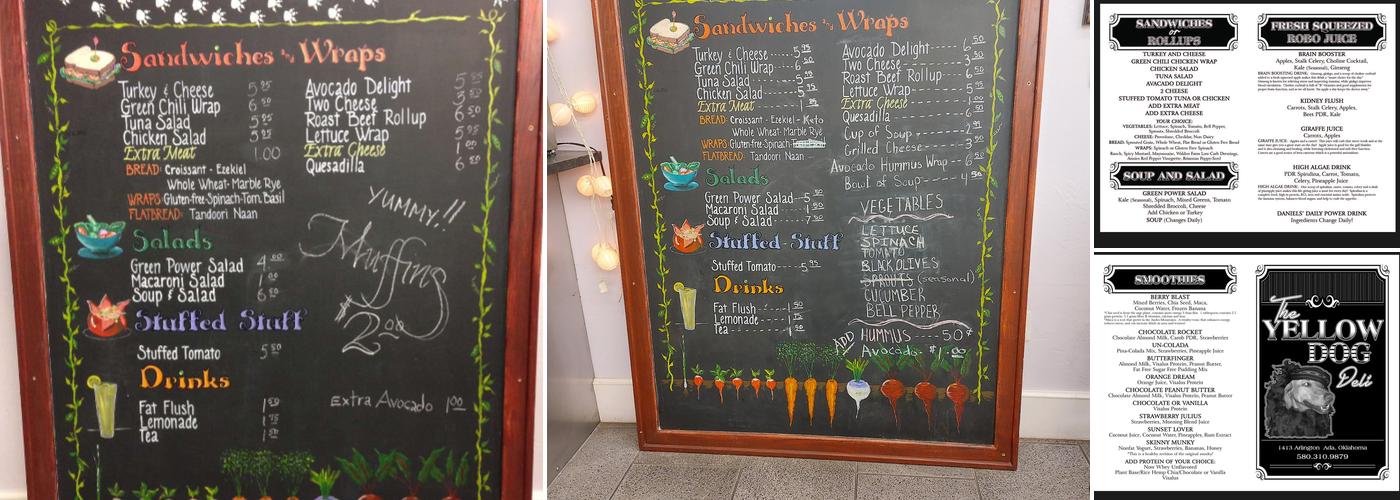 Sandwiches and Wraps
Turkey & Cheese 5.95
Green Chili Wrap 6.50
Tuna Salad 5.95
Chicken Salad 5.95
Extra Meat 1.00
BREAD: Croissant - Ezekiel
Whole Wheat - Marble Rye
WRAPS: Gluten-free-Spinach-Tom. Basil
FLATBREAD: Tandoori Naan
Avocado Delight
Two Cheese
Roast Beef Rollup
Lettuce Wrap
Extra Cheese
Quesadilla
YUMMY!!
Muffins
$2.00
Salads
Green Power Salad 4.00
Macaroni Salad
Soup & Salad 6.50
Stuffed Stuff
Stuffed Tomato 5.50
Drinks
Fat Flush
Lemonade
Tea
Extra Avocado 1.00
Sandwiches and Wraps
Turkey & Cheese ---- 5.95
Green Chili Wrap
Tuna Salad
Chicken Salad
Extra Meat
BREAD: Croissant - Ezekiel - Keto
Whole Wheat - Marble Rye
WRAPS: Gluten-free-Spinach-
FLATBREAD: Tandoori Naan
Avocado Delight ---- 6.50
Two Cheese
Roast Beef Rollup
Lettuce Wrap
Extra Cheese
Quesadilla
Cup of Soup
Grilled Cheese
Avocado Hummus Wrap -- 6.50
Bowl of Soup --- 4.50
Salads
Green Power Salad
Macaroni Salad
Soup & Salad
Stuffed Stuff
Stuffed Tomato --- 5.95
Drinks
Fat Flush
Lemonade
Tea
VEGETABLES
LETTUCE
SPINACH
TOMATO
BLACK OLIVES
SPROUTS (seasonal)
CUCUMBER
BELL PEPPER
ADD HUMMUS ---- 50¢
Avocado - $1.00
SANDWICHES
or
ROLLUPS
TURKEY AND CHEESE
GREEN CHILI CHICKEN WRAP
CHICKEN SALAD
TUNA SALAD
AVOCADO DELIGHT
2 CHEESE
STUFFED TOMATO TUNA OR CHICKEN
ADD EXTRA MEAT
ADD EXTRA CHEESE
YOUR CHOICE:
VEGETABLES: Lettuce, Spinach, Tomato, Bell Pepper,
Sprouts, Shredded Broccoli
CHEESE: Provolone, Cheddar, Non Dairy
BREAD: Sprouted Grain, Whole Wheat, Flat Bread or Gluten Free Bread
WRAPS: Spinach or Gluten Free Spinach
SOUP AND SALAD
GREEN POWER SALAD
Kale (Seasonal), Spinach, Mixed Greens, Tomato
Shredded Broccoli, Cheese
Add Chicken or Turkey
SOUP (Changes Daily)
FRESH SQUEEZED
ROBO JUICE
BRAIN BOOSTER
Apples, Stalk Celery, Choline Cocktail,
Kale (Seasonal), Ginseng
KIDNEY FLUSH
Carrots, Stalk Celery, Apples,
Beet PDR, Kale
GIRAFFE JUICE
Carrots, Apples
HIGH ALGAE DRINK
PDR Spirulina, Carrot, Tomato,
Celery, Pineapple Juice
DANIELS' DAILY POWER DRINK
Ingredients Change Daily!
SMOOTHIES
BERRY BLAST
Mixed Berries, Chia Seed, Maca,
Coconut Water, Frozen Banana
CHOCOLATE ROCKET
Chocolate Almond Milk, Camb PDR, Strawberries
UN-COLADA
Pina-Colada Mix, Strawberries, Pineapple Juice
BUTTERFINGER
Almond Milk, Visalus Protein, Peanut Butter,
Fat Free Sugar Free Pudding Mix
ORANGE DREAM
Orange Juice, Visalus Protein
CHOCOLATE PEANUT BUTTER
Chocolate Almond Milk, Visalus Protein, Peanut Butter
CHOCOLATE OR VANILLA
Visalus Protein
STRAWBERRY JULIUS
Strawberries, Morning Blend Juice
SUNSET LOVER
Coconut Juice, Coconut Water, Pineapples, Rum Extract
SKINNY MUNKY
Nonfat Yogurt, Strawberries, Bananas, Honey
*This is a healthy revision of the original munky!
ADD PROTEIN OF YOUR CHOICE:
Now Whey Unflavored
Plant Base/Rice Hemp Chia/Chocolate or Vanilla
Visalus
The
YELLOW
DOG
Deli
1413 Arlington Ada, Oklahoma
580.310.9879